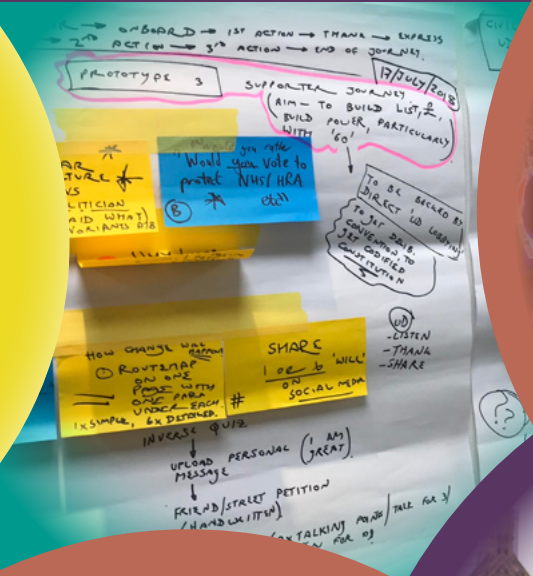 → ONBOARD → 1ST ACTION → THANK → EXPRESS
→ 2ND ACTION → 3RD ACTION → END OF JOURNEY.
17/JULY/2018
PROTOTYPE 3
SUPPORTER JOURNEY
(AIM - TO BUILD LIST, £,
BUILD POWER, PARTICULARLY
WITH '60'
would you rather
"Would you vote to
protect NHS/HRA
etc"
B
TO BE BACKED BY
DIRECT UD LOBBYING
TO GET DELIB.
CONVENTION, TO
GET CODIFIED
CONSTITUTION
UD
-LISTEN
-THANK
-SHARE
HOW CHANGE WILL
HAPPEN
① ROUTEMAP
ON ONE
PAGE WITH
ONE PARA
UNDER EACH
1x SIMPLE, 6x DETAILED.
SHARE
1 OF 6 'WILL'
ON
SOCIAL MEDIA
#
INVERSE QUIZ
UPLOAD PERSONAL (I AM
MESSAGE GREAT)
FRIEND/STREET PETITION
(HANDWRITTEN)
TALKING POINTS / TALK FOR 3/
FOR
??